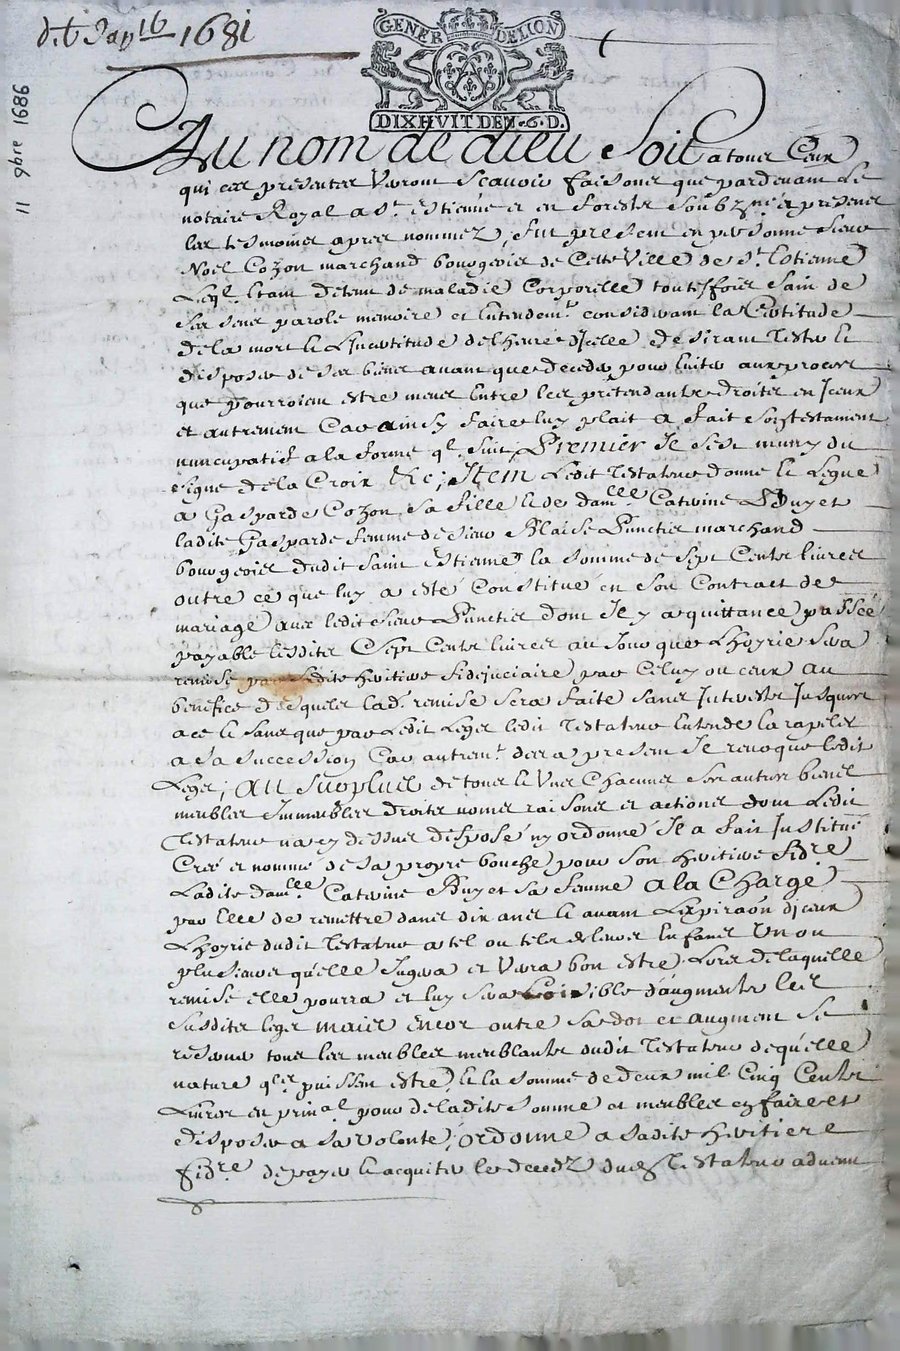 1681
GENER DELION
DIXHVIT DEN .6.D.
11 9bre 1686
Au nom de dieu Soit a tous Ceux
qui ces presentes Verront Scavoir faisons que pardevant Le
notaire Royal a St. Estienne et en forestz soubzne et presens
les tesmoins apres nommez, fut present en personne sieur
Noel Cozon marchand bourgeois de Cette Ville de St. Estienne
Leql. Estant detenu de maladie Corporelle toutesfois Sain de
ses sens parole memoire et Entendemt. considerant la Certitude
de la mort & L'Incertitude de l'heure d'Icelle desirant Tester &
disposer de ses biens avant que deceder pour Eviter aux proces
que pourroient estre meus Entre les pretendants droits en Iceux
et autrement Car ainsy faire luy plait a fait son testament
nuncupatif a la forme ql. suit, Premier Il s'est muny du
signe de la Croix &c; Item Ledit Testateur donne & Legue
a Gasparde Cozon sa fille & de damlle. Caterine Buyet
ladite Gasparde femme de sieur Blaise Punctis marchand
bourgeois dudit Saint Estienne la somme de Sept Cents livres
outre ce que luy a esté Constitué en son Contract de
mariage avec ledit sieur Punctis dont Il y a quittance passée
payable lesdites Sept Cents livres au Jour que L'hoyrie sera
remise par ladite heritiere fidejuciaire par Celuy ou ceux au
benefice desquels lad. remise sera faite sans Interests Jusques
a ce & sans que par Ledit Legat ledit Testateur Entende la rapeler
a sa succession Car autremt. des a present Il revoque ledit
Legat; Au surplus de tous & Uns Chacuns ses autres biens
meubles Immeubles droits noms raisons et actions dont Ledit
Testateur n'a cy dessus disposé ny ordonné Il a fait Institué
Creé et nommé de sa propre bouche pour son heritiere fidre
Ladite damlle. Caterine Buyet sa femme a la Charge
par Elle de remettre dans dix ans & avant L'expiraon d'Iceux
L'hoyrie dudit Testateur a tel ou tels de leurs Enfans Un ou
plusieurs qu'elle Jugera et Verra bon estre Lors de laquelle
remise elle pourra et luy sera Loisible d'augmenter les
susdits legats mais encor outre sa dot et augment se
reserver tous les meubles meublants dudit Testateur de qu'elle
nature qls. puissent estre & la somme de deux mil Cinq Cents
Livres en prinal pour de ladite somme et meubles en faire et
disposer a sa volonté; ordonne a sadite heritiere
fidre. de payer & acquiter le deceds dudit Testateur advenu